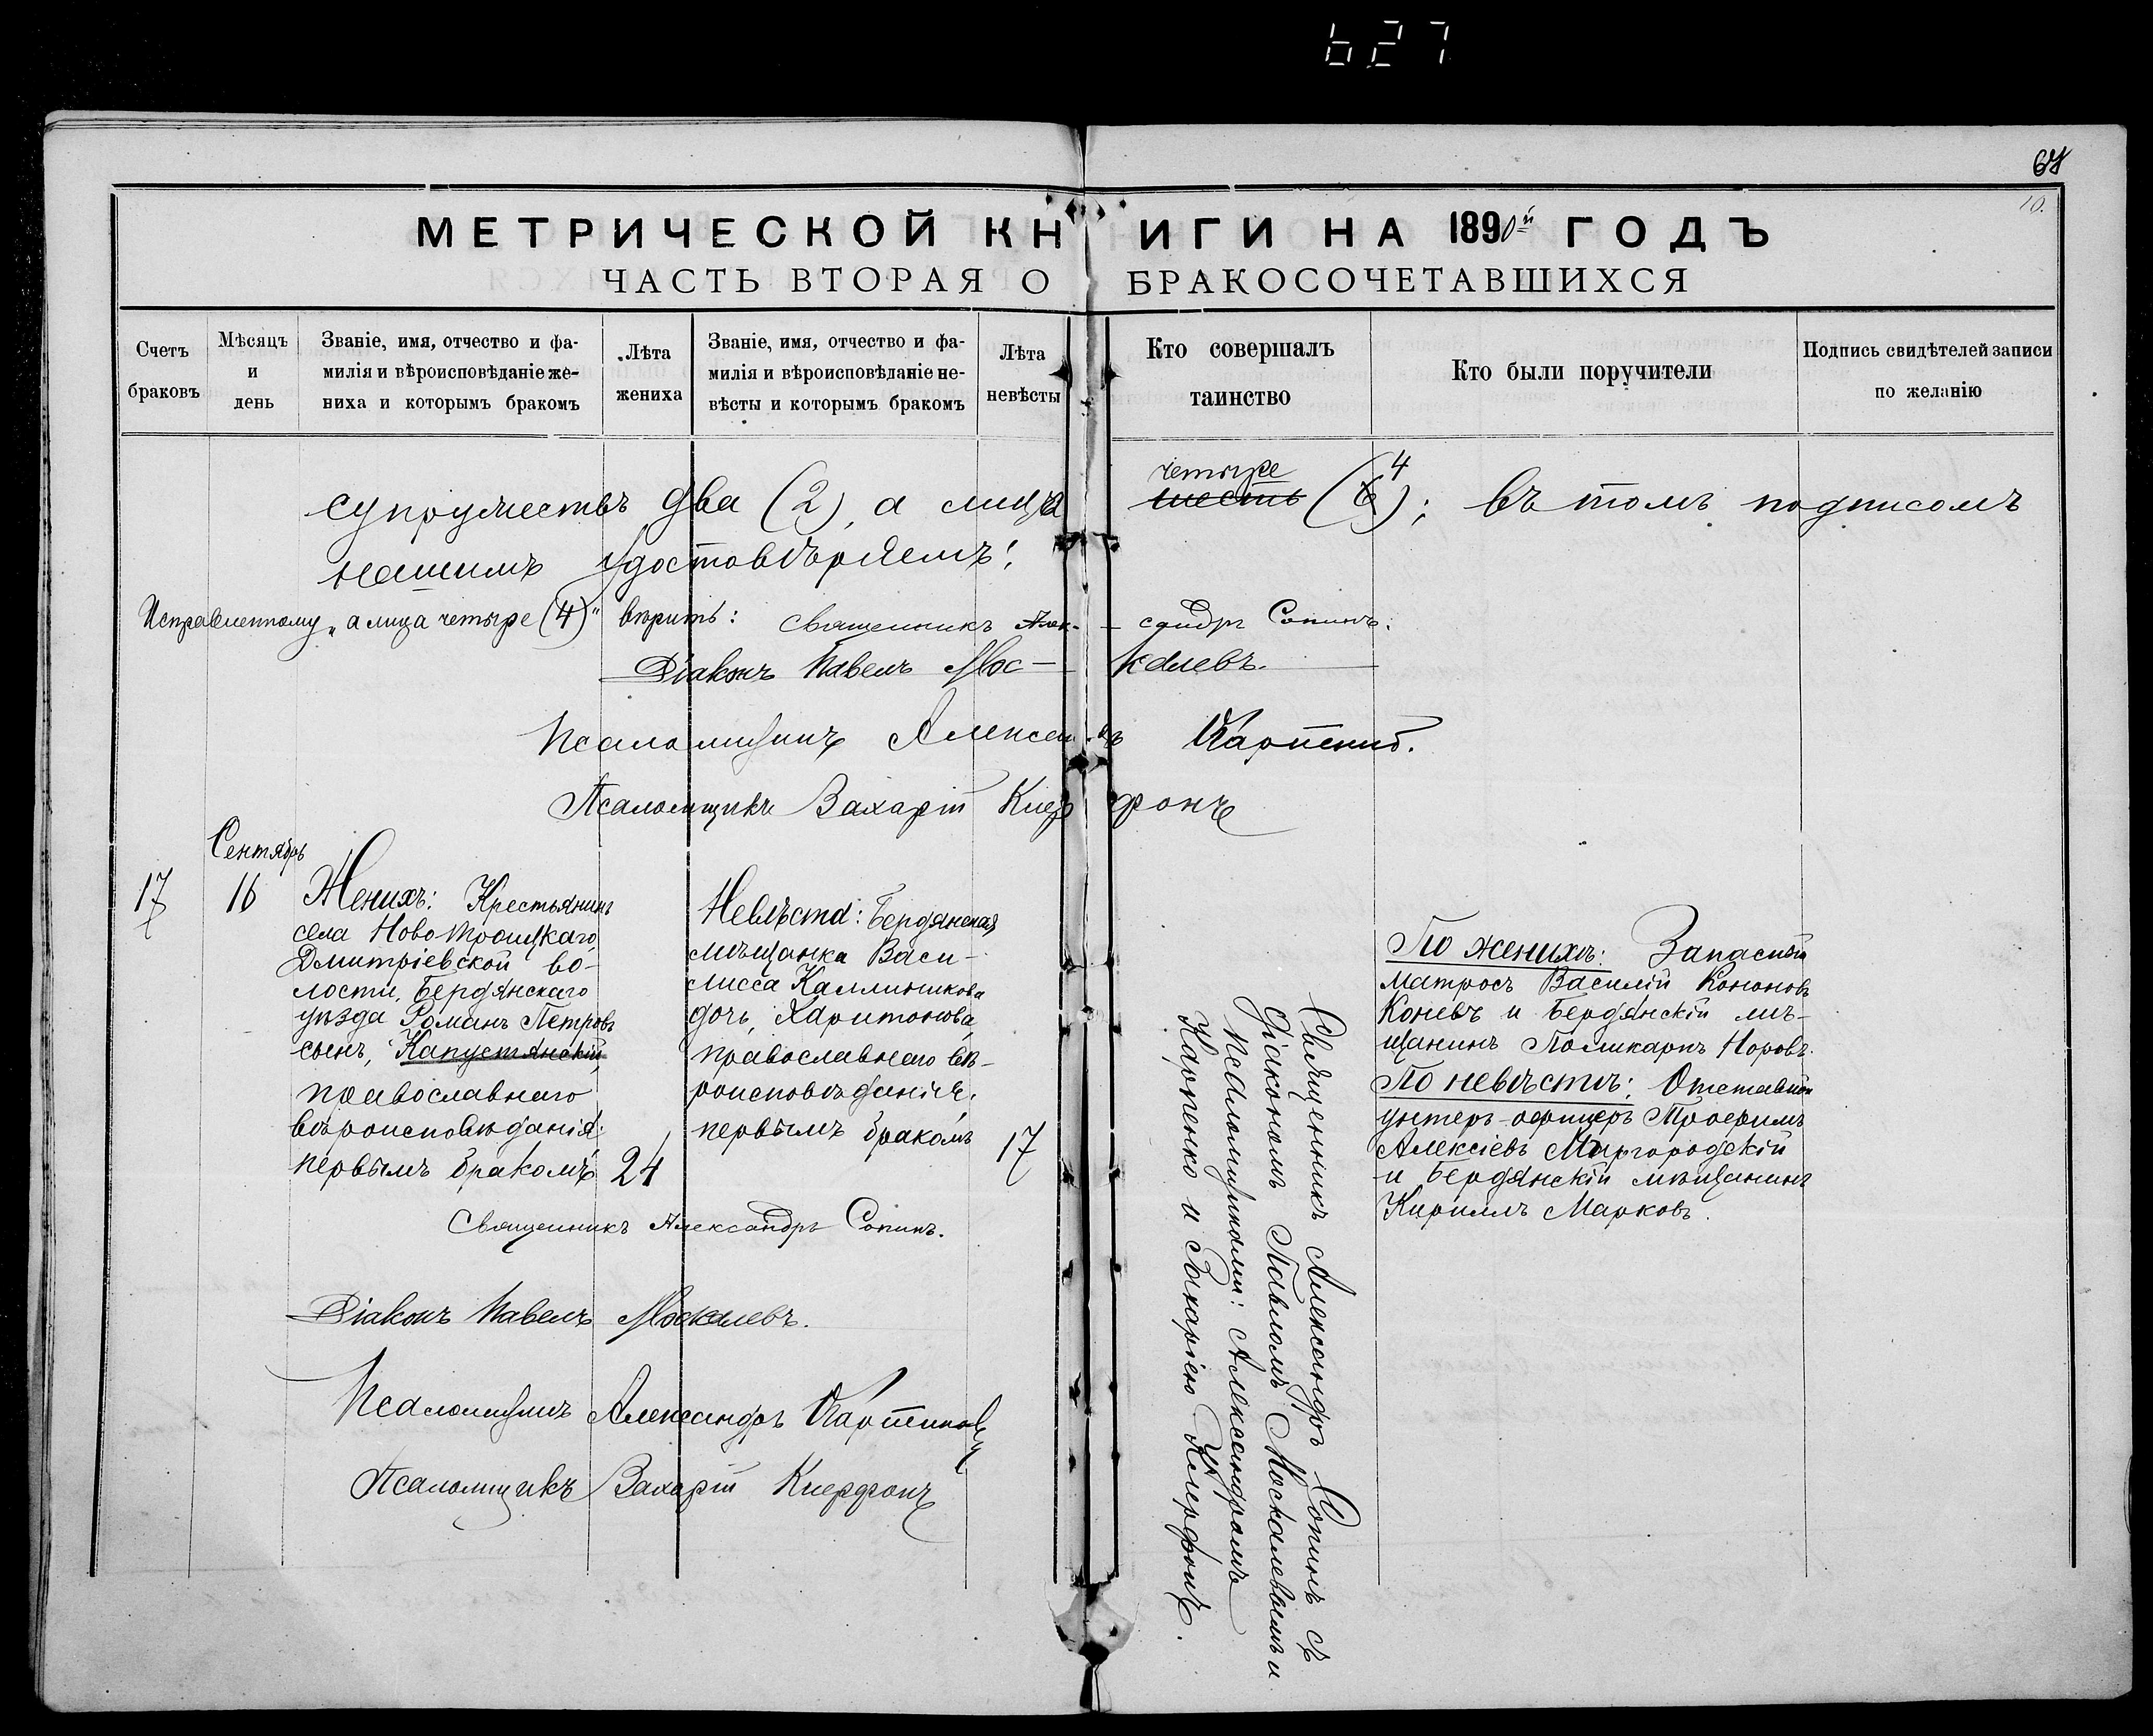 627
68
10.
МЕТРИЧЕСКОЙ КНИГИ НА 1890й ГОДЪ
ЧАСТЬ ВТОРАЯ О БРАКОСОЧЕТАВШИХСЯ
Счетъ
браковъ
Мѣсяцъ
и
день
Званіе, имя, отчество и фа-
милія и вѣроисповѣданіе же-
ниха и которымъ бракомъ
Лѣта
жениха
Званіе, имя, отчество и фа-
милія и вѣроисповѣданіе не-
вѣсты и которымъ бракомъ
Лѣта
невѣсты
Кто совершалъ
таинство
Кто были поручители
Подпись свидѣтелей записи
по желанію
четыре 4
супружествъ два (2), а лица шесть (6); въ томъ подписомъ
нашимъ удостовѣряемъ:
Исправленному „а лица четыре (4)" вѣрить: Священникъ Александръ Сопинъ.
Діаконъ Павелъ Мос- калевъ.
Псаломщикъ Александръ Карпенко.
Псаломщикъ Захарій Клерфонъ
Сентябрь
17
16
Женихъ: Крестьянинъ
села Ново Троицкаго,
Дмитріевской во-
лости, Бердянскаго
уѣзда Романъ Петровъ
сынъ, Капустянскій,
православнаго
вѣроисповѣданія:
первымъ бракомъ
24
Невѣста: Бердянская
мѣщанка Васи-
лисса Каллиникова
дочь, Харитонова,
православнаго вѣ-
роисповѣданія.
первымъ бракомъ
17
Священникъ Александръ Сопинъ съ
діакономъ Павломъ Москалевымъ и
псаломщиками: Александромъ
Карпенко и Захаріею Клерфонъ.
По женихѣ: Запасный
матросъ Василій Кононовъ
Коневъ и Бердянскій мѣ-
щанинъ Поликарпъ Норовъ.
По невѣстѣ: Отставной
унтеръ-офицеръ Трофимъ
Алексіевъ Миргородскій
и Бердянскій мѣщанинъ
Кириллъ Марковъ.
Священникъ Александръ Сопинъ.
Діаконъ Павелъ Москалевъ.
Псаломщикъ Александръ Карпенко
Псаломщикъ Захарій Клерфонъ